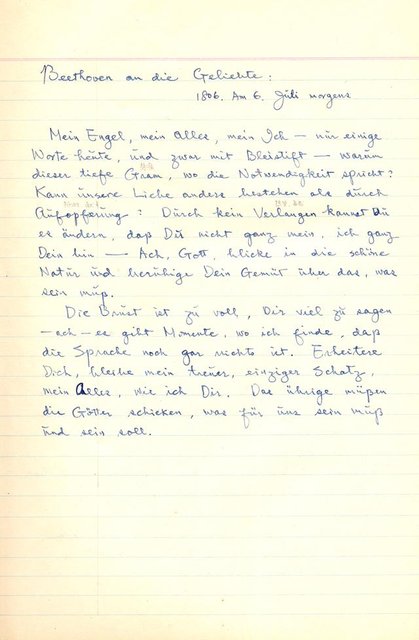 Beethoven an die Geliebte:
1806. Am 6. Juli morgens
Mein Engel, mein Alles, mein Ich — nur einige
Worte heute, und zwar mit Bleistift — warum
dieser tiefe Gram, wo die Notwendigkeit spricht?
Kann unsere Liebe anders bestehen als durch
Aufopferung? Durch kein Verlangen kannst Du
es ändern, daß Du nicht ganz mein, ich ganz
Dein bin — Ach, Gott, blicke in die schöne
Natur und beruhige Dein Gemüt über das, was
sein muß.
Die Brust ist zu voll, Dir viel zu sagen
— ach — es gibt Momente, wo ich finde, daß
die Sprache noch gar nichts ist. Erheitere
Dich, bleibe mein treuer, einziger Schatz,
mein Alles, wie ich Dir. Das übrige müßen
die Götter schicken, was für uns sein muß
und sein soll.